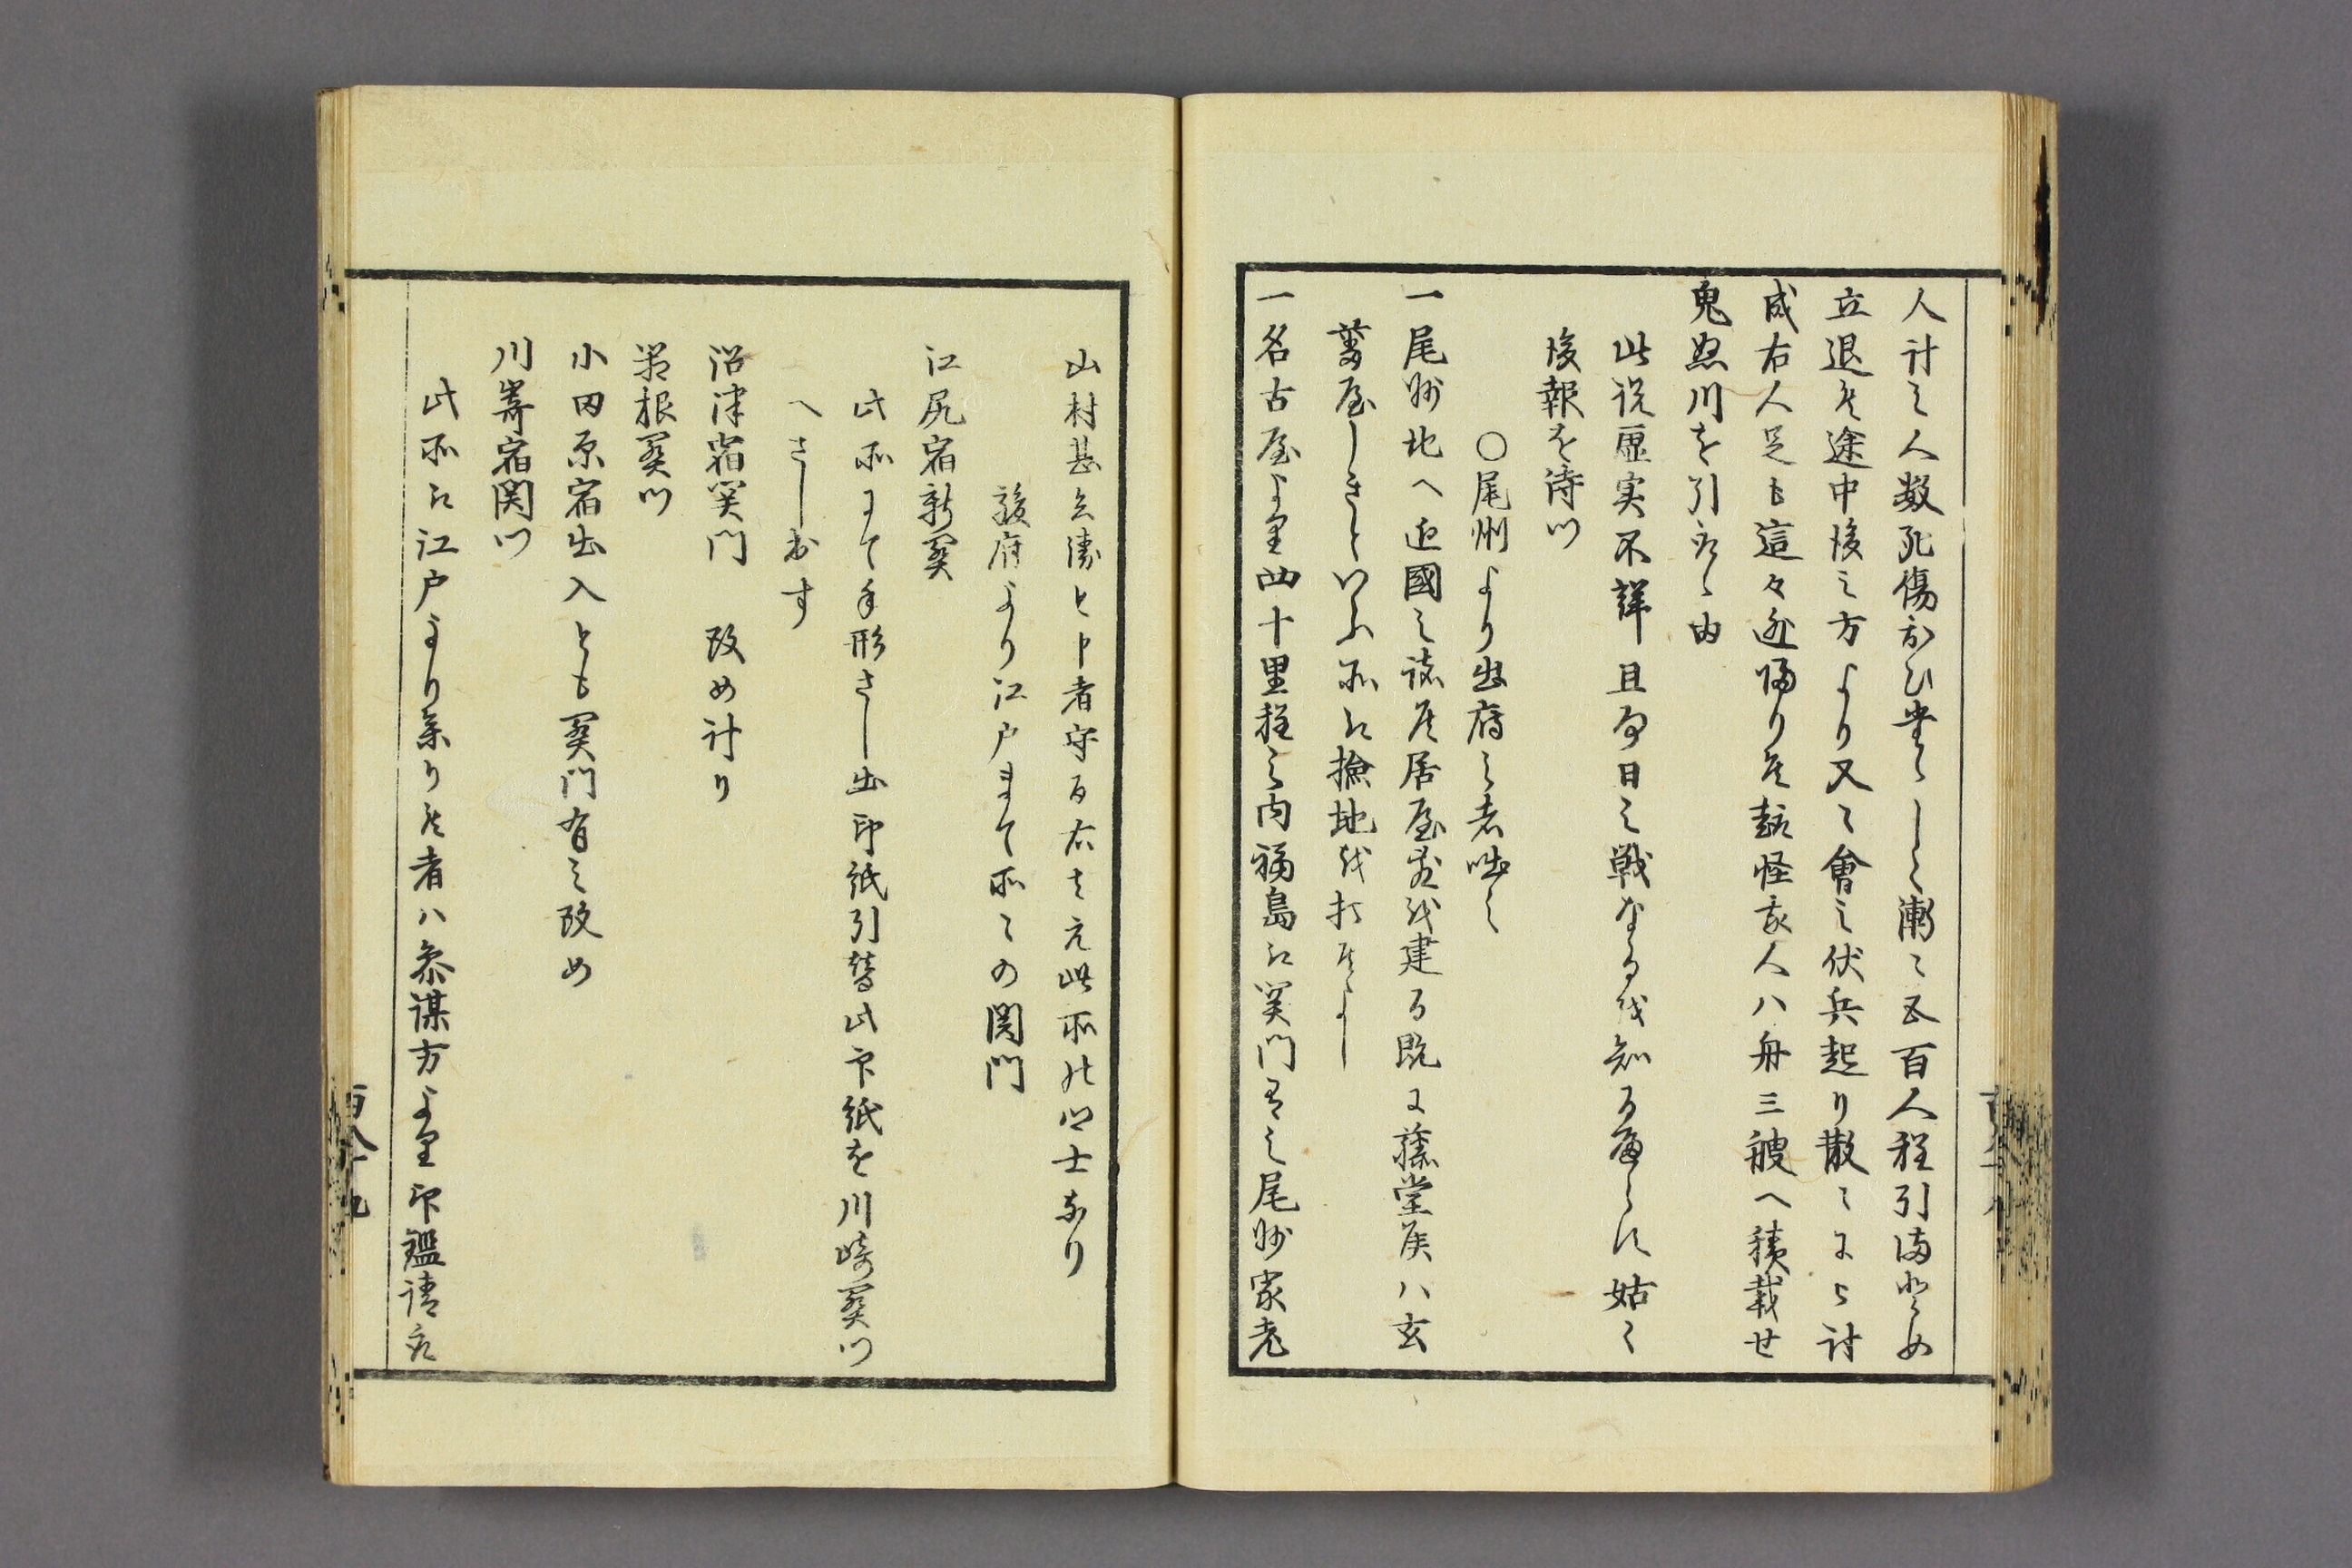 人計之人数死傷おひ
漸々五百人程引
立退候途中後之方より又々會之伏兵起り散々に被討
成右人足も這々逃帰り候趣怪我人ハ舟三艘へ積載せ
鬼怒川を引取候由
此説虚実不詳且何日之戦なるを知るへからす姑く
後報を待つ
〇尾州より出府之者咄之
一尾州地へ近國之諸侯居屋敷を建る既に藤堂侯ハ玄
蕃屋しきといふ所江撿地を打候よし
一名古屋より四十里程之内福島江関門有之尾州家老
山村甚兵衛と申者守る右は元此所の郷士なり
駿府より江戸まて所々の関門
江尻宿新関
此所にて手形さし出印紙引替此印紙を川崎関門
へさし出す
沼津宿関門　改め計り
箱根関門
小田原宿出入とも関門有之改め
川嵜宿関門
此所江江戸より参り候者ハ参謀方より印鑑請取
百八十九